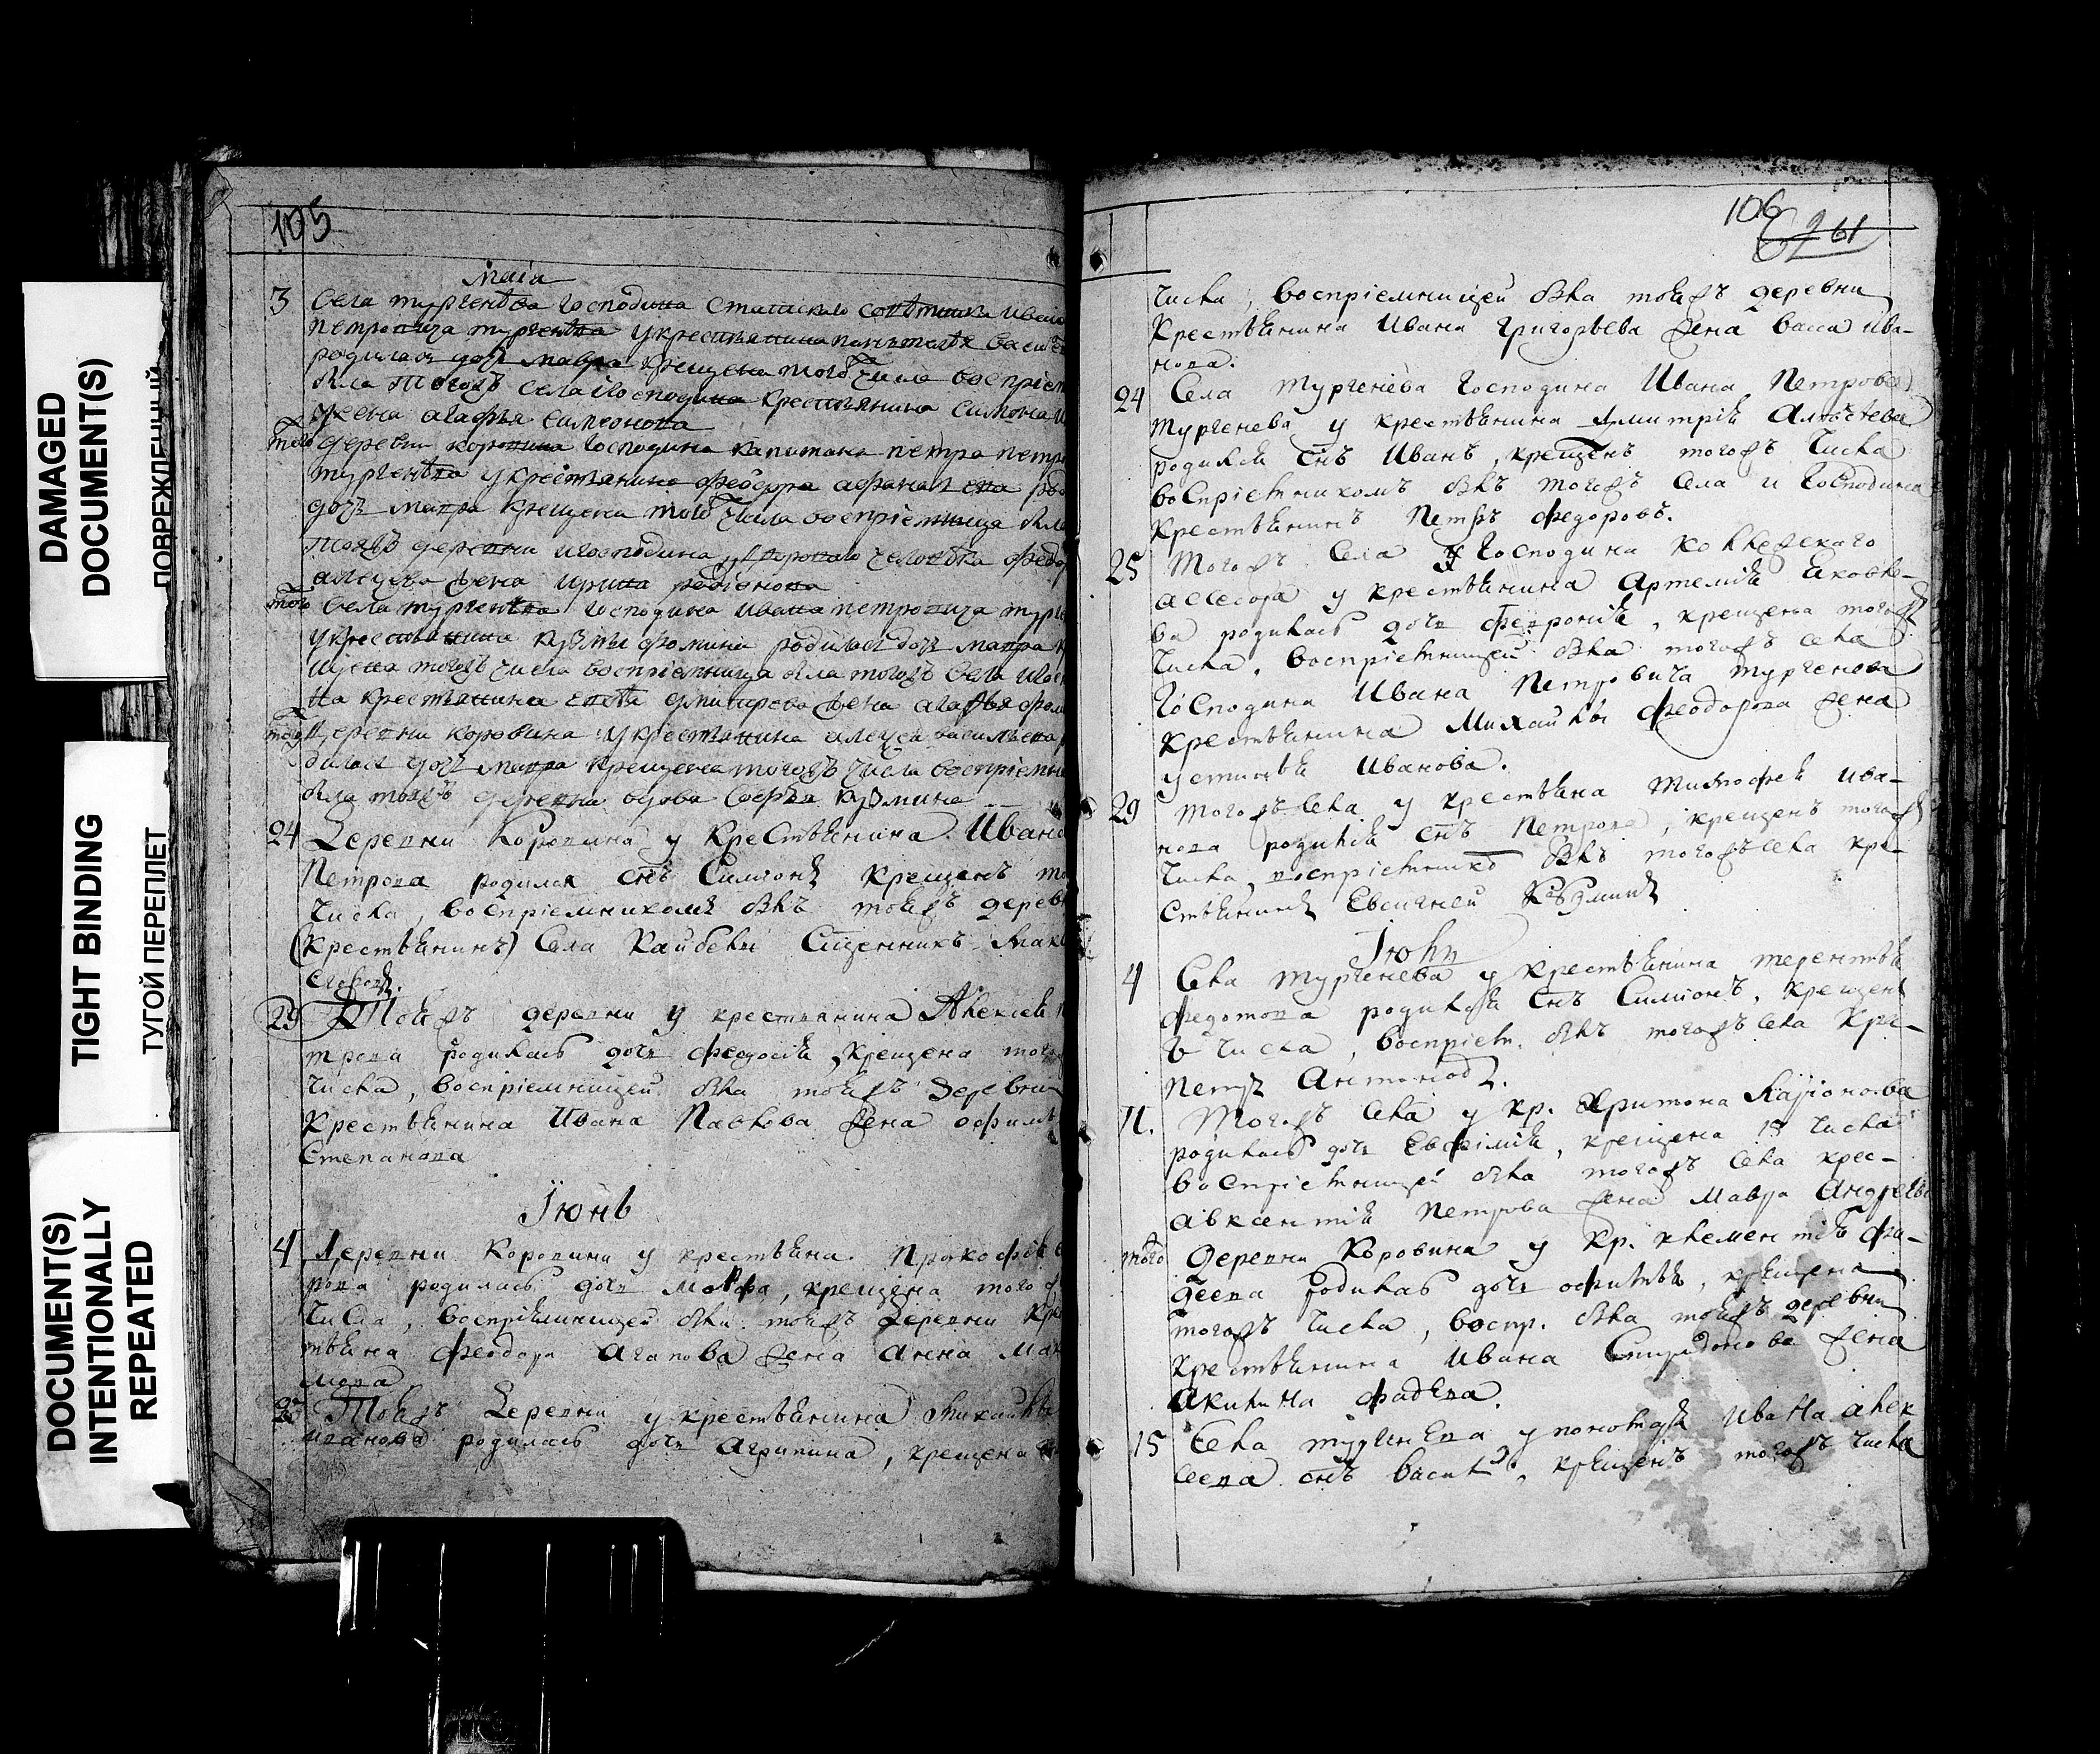 DAMAGED
DOCUMENT(S)
ПОВРЕЖДЕННЫЙ
TIGHT BINDING
ТУГОЙ ПЕРЕПЛЕТ
DOCUMENT(S)
INTENTIONALLY
REPEATED
105
маїя
3 Села тургенѣва господина статскаго совѣтника ивана
петровича тургенѣва у крестьянина
родилась дочь мавра крещена того числа воспрїем
была тогожъ села и господина крестьянина симона
жена агафья симеонова
того деревни коровина господина капитана петра петро
тургенѣва у крестьянина федора афанасьева ро
дочь мавра крещена того числа воспрїемница была
тояжъ деревни и господина дворового человѣка федо
жена ирина родїонова
того Села тургенѣва господина ивана петровича турге
у крестьянина кузмы фомина родилась дочь мавра к
щена тогожъ числа воспрїемница была тогожъ села и госп
на крестьянина дмитрева жена агафья фом
тогож деревни коровина у крестьянина алеѯея васильева р
дилась дочь мавра крещена тогожъ числа воспрїемни
была тоежъ деревни вдова софья кузмина
24 Деревни Коровина у крестьянина Ивана
Петрова родился снъ Симїонъ крещенъ то
числа, воспрїемникомъ былъ тоежъ дерев
(крестьянинъ) Села Кайбелы Сщенникъ Яков
29 Тоежъ деревни у крестьянина Алексея П
трова родилась дочь Федосїя, крещена того
числа, воспрїемницей была тоежъ деревни
крестьянина Ивана Павлова жена офимья
Степанова
Їюнь
4 Деревни Коровина у крестьяна. Прокофья
рова родилась дочь Мавра, крещена того ж
числа, воспрїемницей была тоежъ деревни кре
тьяна Феодора Агапова жена Анна Мак
мова
Тоежъ деревни у крестьянина Михайлы
Иванова родилась дочь Агрипина, крещена
106
261
числа, воспрїемницей была тоежъ деревни
крестьянина Ивана Григорьева жена Васса Ива-
нова.
24 Села Тургенева господина Ивана Петрова
Тургенева у крестьянина Дмитрїя Алексѣева
родился снъ Иванъ, крещенъ тогожъ числа
воспрїемникомъ былъ тогожъ села и господина
крестьянинъ Петръ Федоровъ.
25 Тогожъ села у господина коллежскаго
асесора у крестьянина Артемїя Яковле-
ва родилась дочь Феврония, крещена тогож
числа, воспрїемницей была тогожъ села
господина Ивана Петровича Тургенова
крестьянина Михайлы Феодорова жена
устинья Иванова.
29 тогожъ села у крестьяна Тимофея Ива-
нова родился снъ Петръ, крещенъ тогож
числа, воспрїемнико былъ тогожъ села кре-
стьянинъ Евсигней Козминъ
Їюнь
4 Села Тургенева у крестьянина терентья
Федотова родился снъ Симїонъ, крещенъ
числа, воспрїем. былъ тогожъ села Кре-
Петръ Антоновъ.
11. Тогожъ села у кр. Харитона Ларїонова
родилась дочь Евфимїя, крещена 15 числа
воспрїемницей была тогожъ села крес-
авксентїя Петрова жена Мавра Андреева
того Деревни Коровина у кр. клементїя Фа-
деева родилась дочь офимья, крещена
тогожъ числа, воспр. была тоежъ деревни
крестьянина Ивана Спиридонова жена
Акилина Фадева.
15 Села тургенева у пономаря Ивана Алек
сеева снъ Васил, крещенъ тогожъ числа